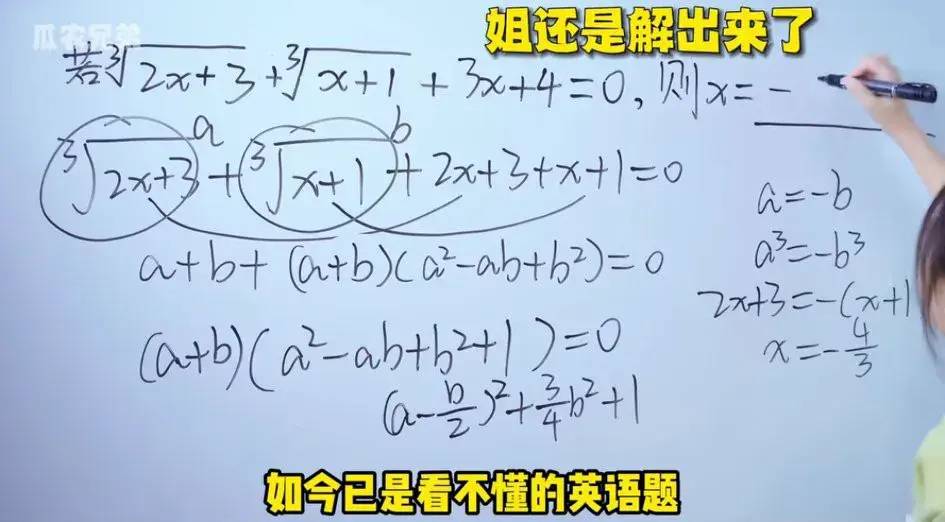 瓜农兄弟
姐还是解出来了
若∛(2x+3) + ∛(x+1) + 3x+4=0, 则x= -
a b
∛(2x+3) + ∛(x+1) + 2x+3+x+1=0
a+b+ (a+b)(a²-ab+b²)=0
(a+b)(a²-ab+b²+1)=0
(a-b/2)²+3/4b²+1
a=-b
a³=-b³
2x+3=-(x+1
x=-4/3
如今已是看不懂的英语题